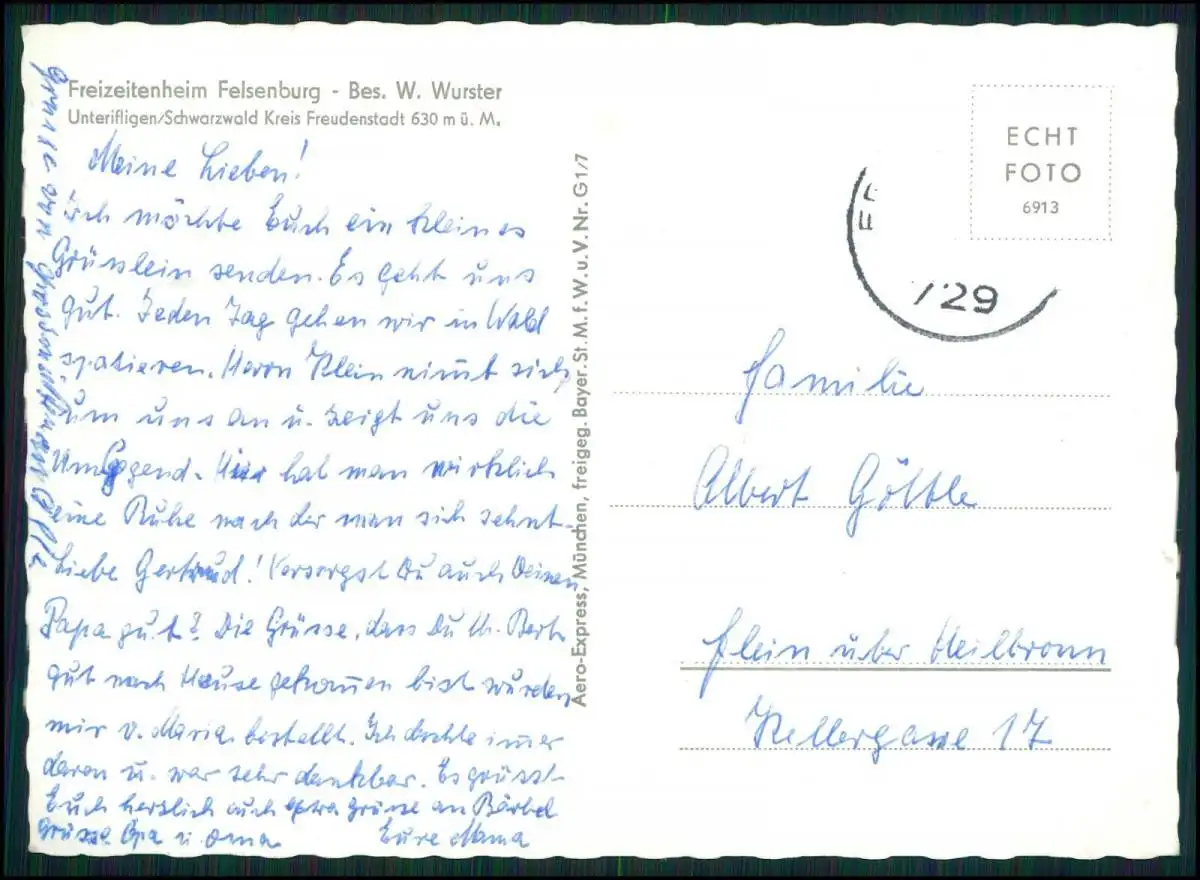 Freizeitenheim Felsenburg - Bes. W. Wurster
Unterifligen/Schwarzwald Kreis Freudenstadt 630 m ü. M.
Meine Lieben!
Ich möchte Euch ein kleines
Grüsslein senden. Es geht uns
gut. Jeden Tag gehen wir in Wald
spatieren. Herrn Klein nimmt sich
um uns an u. zeigt uns die
Umgegend. Hier hat man wirklich
eine Ruhe nach der man sich sehnt.
Liebe Gertrud! Versorgst Du auch Deinen
Papa gut? Die Grüsse, dass Du m. Bert
gut nach Hause gekommen bist wurden
mir v. Maria bestellt. Ich dachte immer
daran u. war sehr dankbar. Es grüsst
Euch herzlich auch extra Grüsse an Bärbel
Grüsse Opa u. Oma Eure Mama
Grüsse von
Aero-Express, München, freigeg. Bayer. St. M. f. W. u. V. Nr. G1/7
ECHT
FOTO
6913
729
Familie
Albert Göltle
Flein über Heilbronn
Kellergasse 17